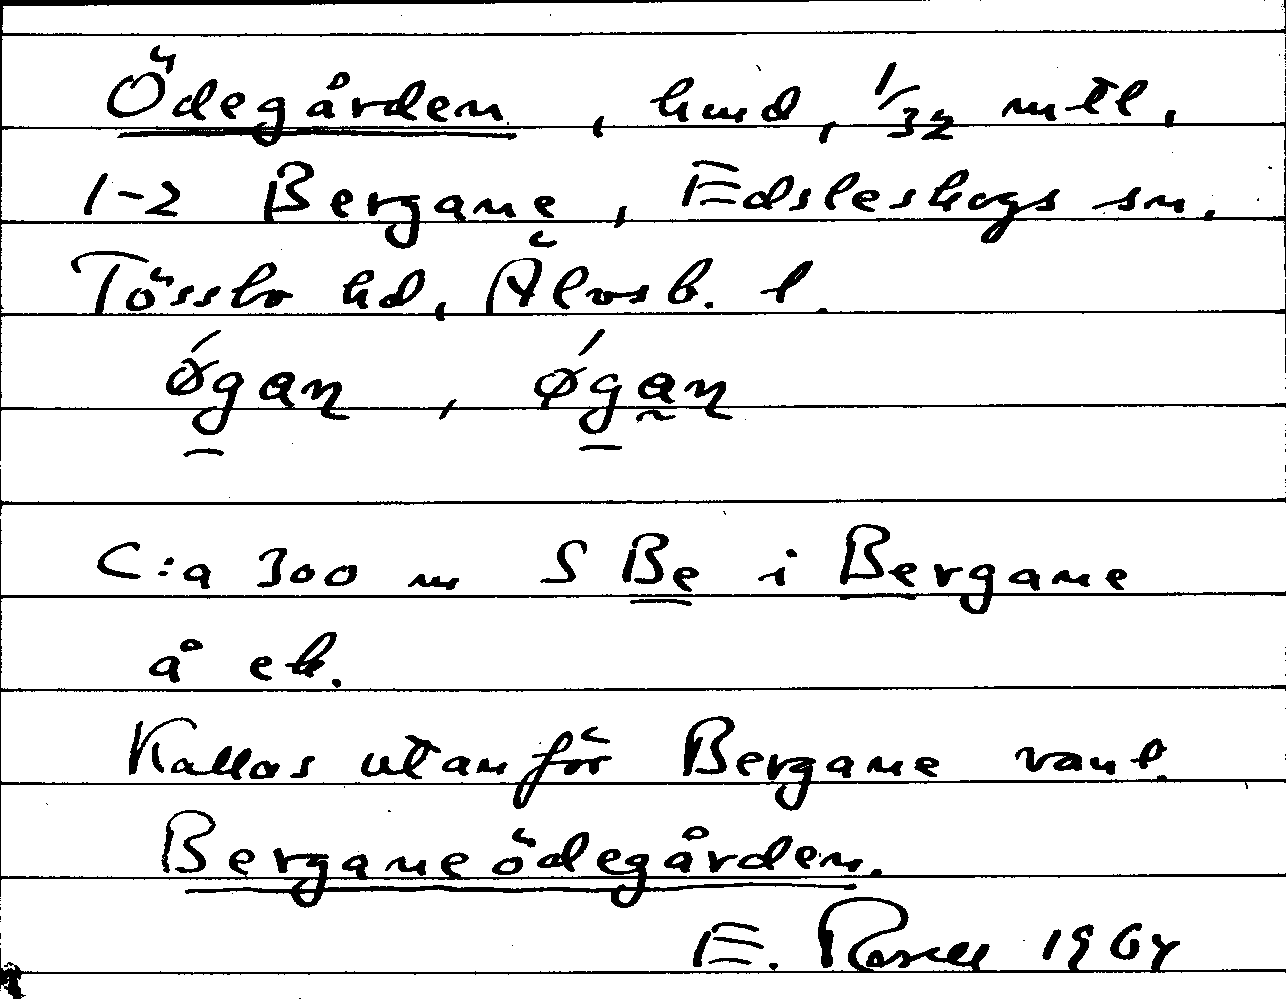 Ödegården, hmd, 1/32 mtl,
1-2 Bergane, Edsleskogs sn.
Tössbo hd, Älvsb. l.
ǿgan, ǿgan
C:a 300 m S Be i Bergane
å ek.
Kallas utanför Bergane vanl.
Bergane ödegården.
E. Rosell 1964